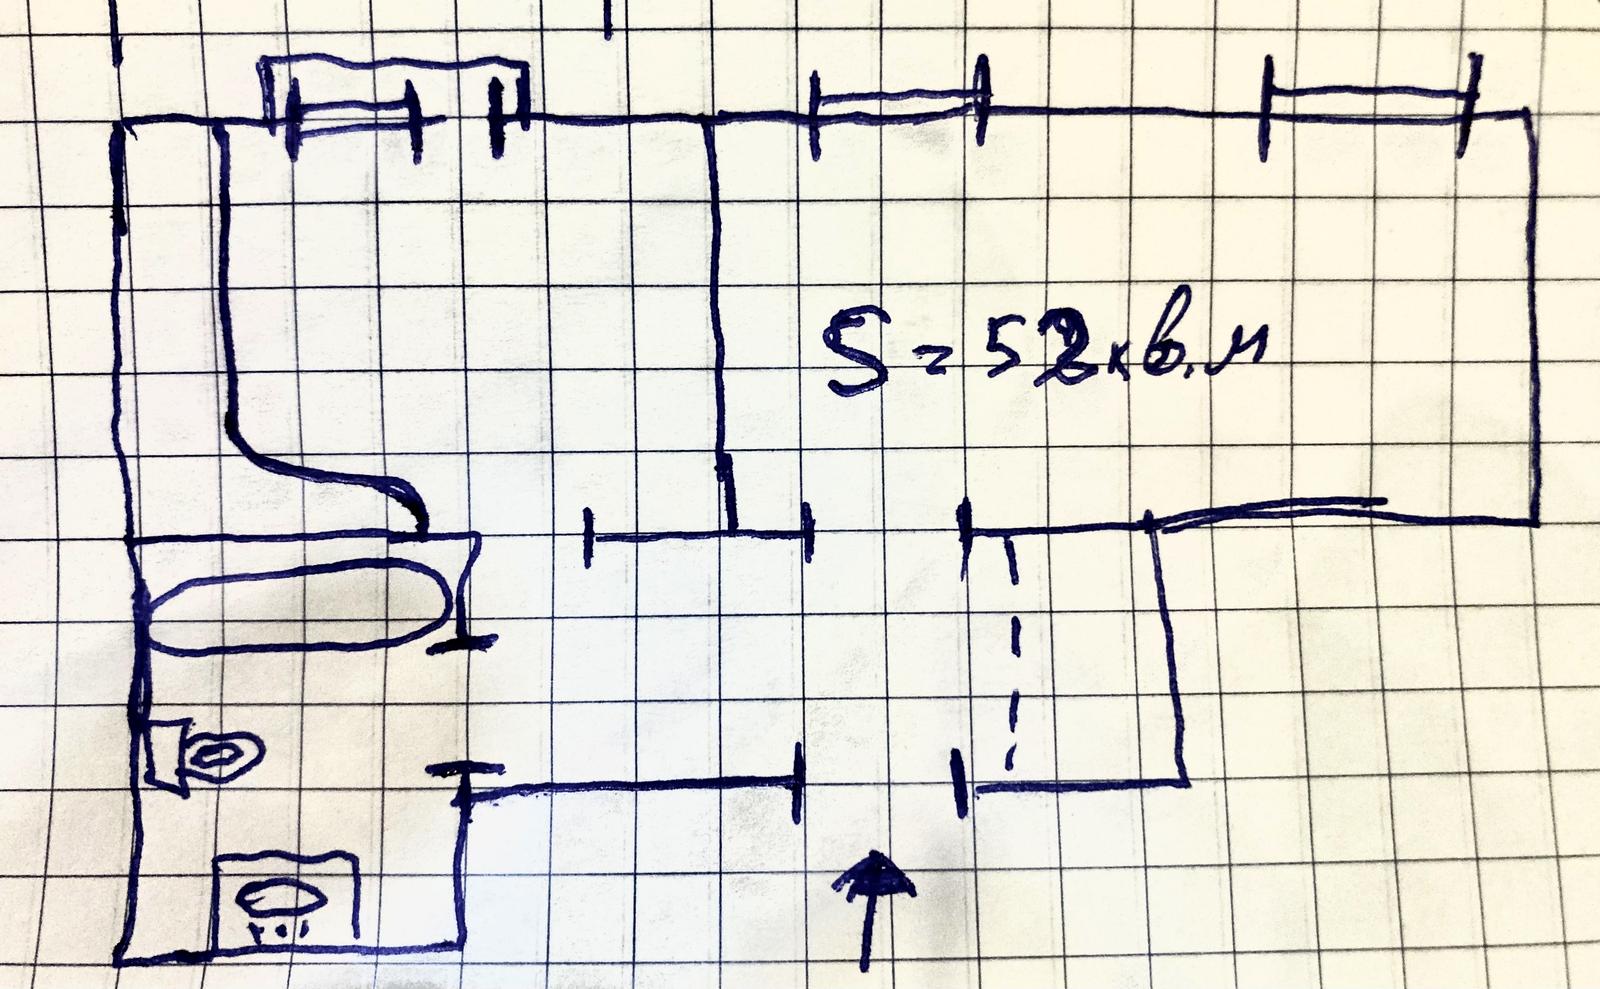 S = 52 кв.м